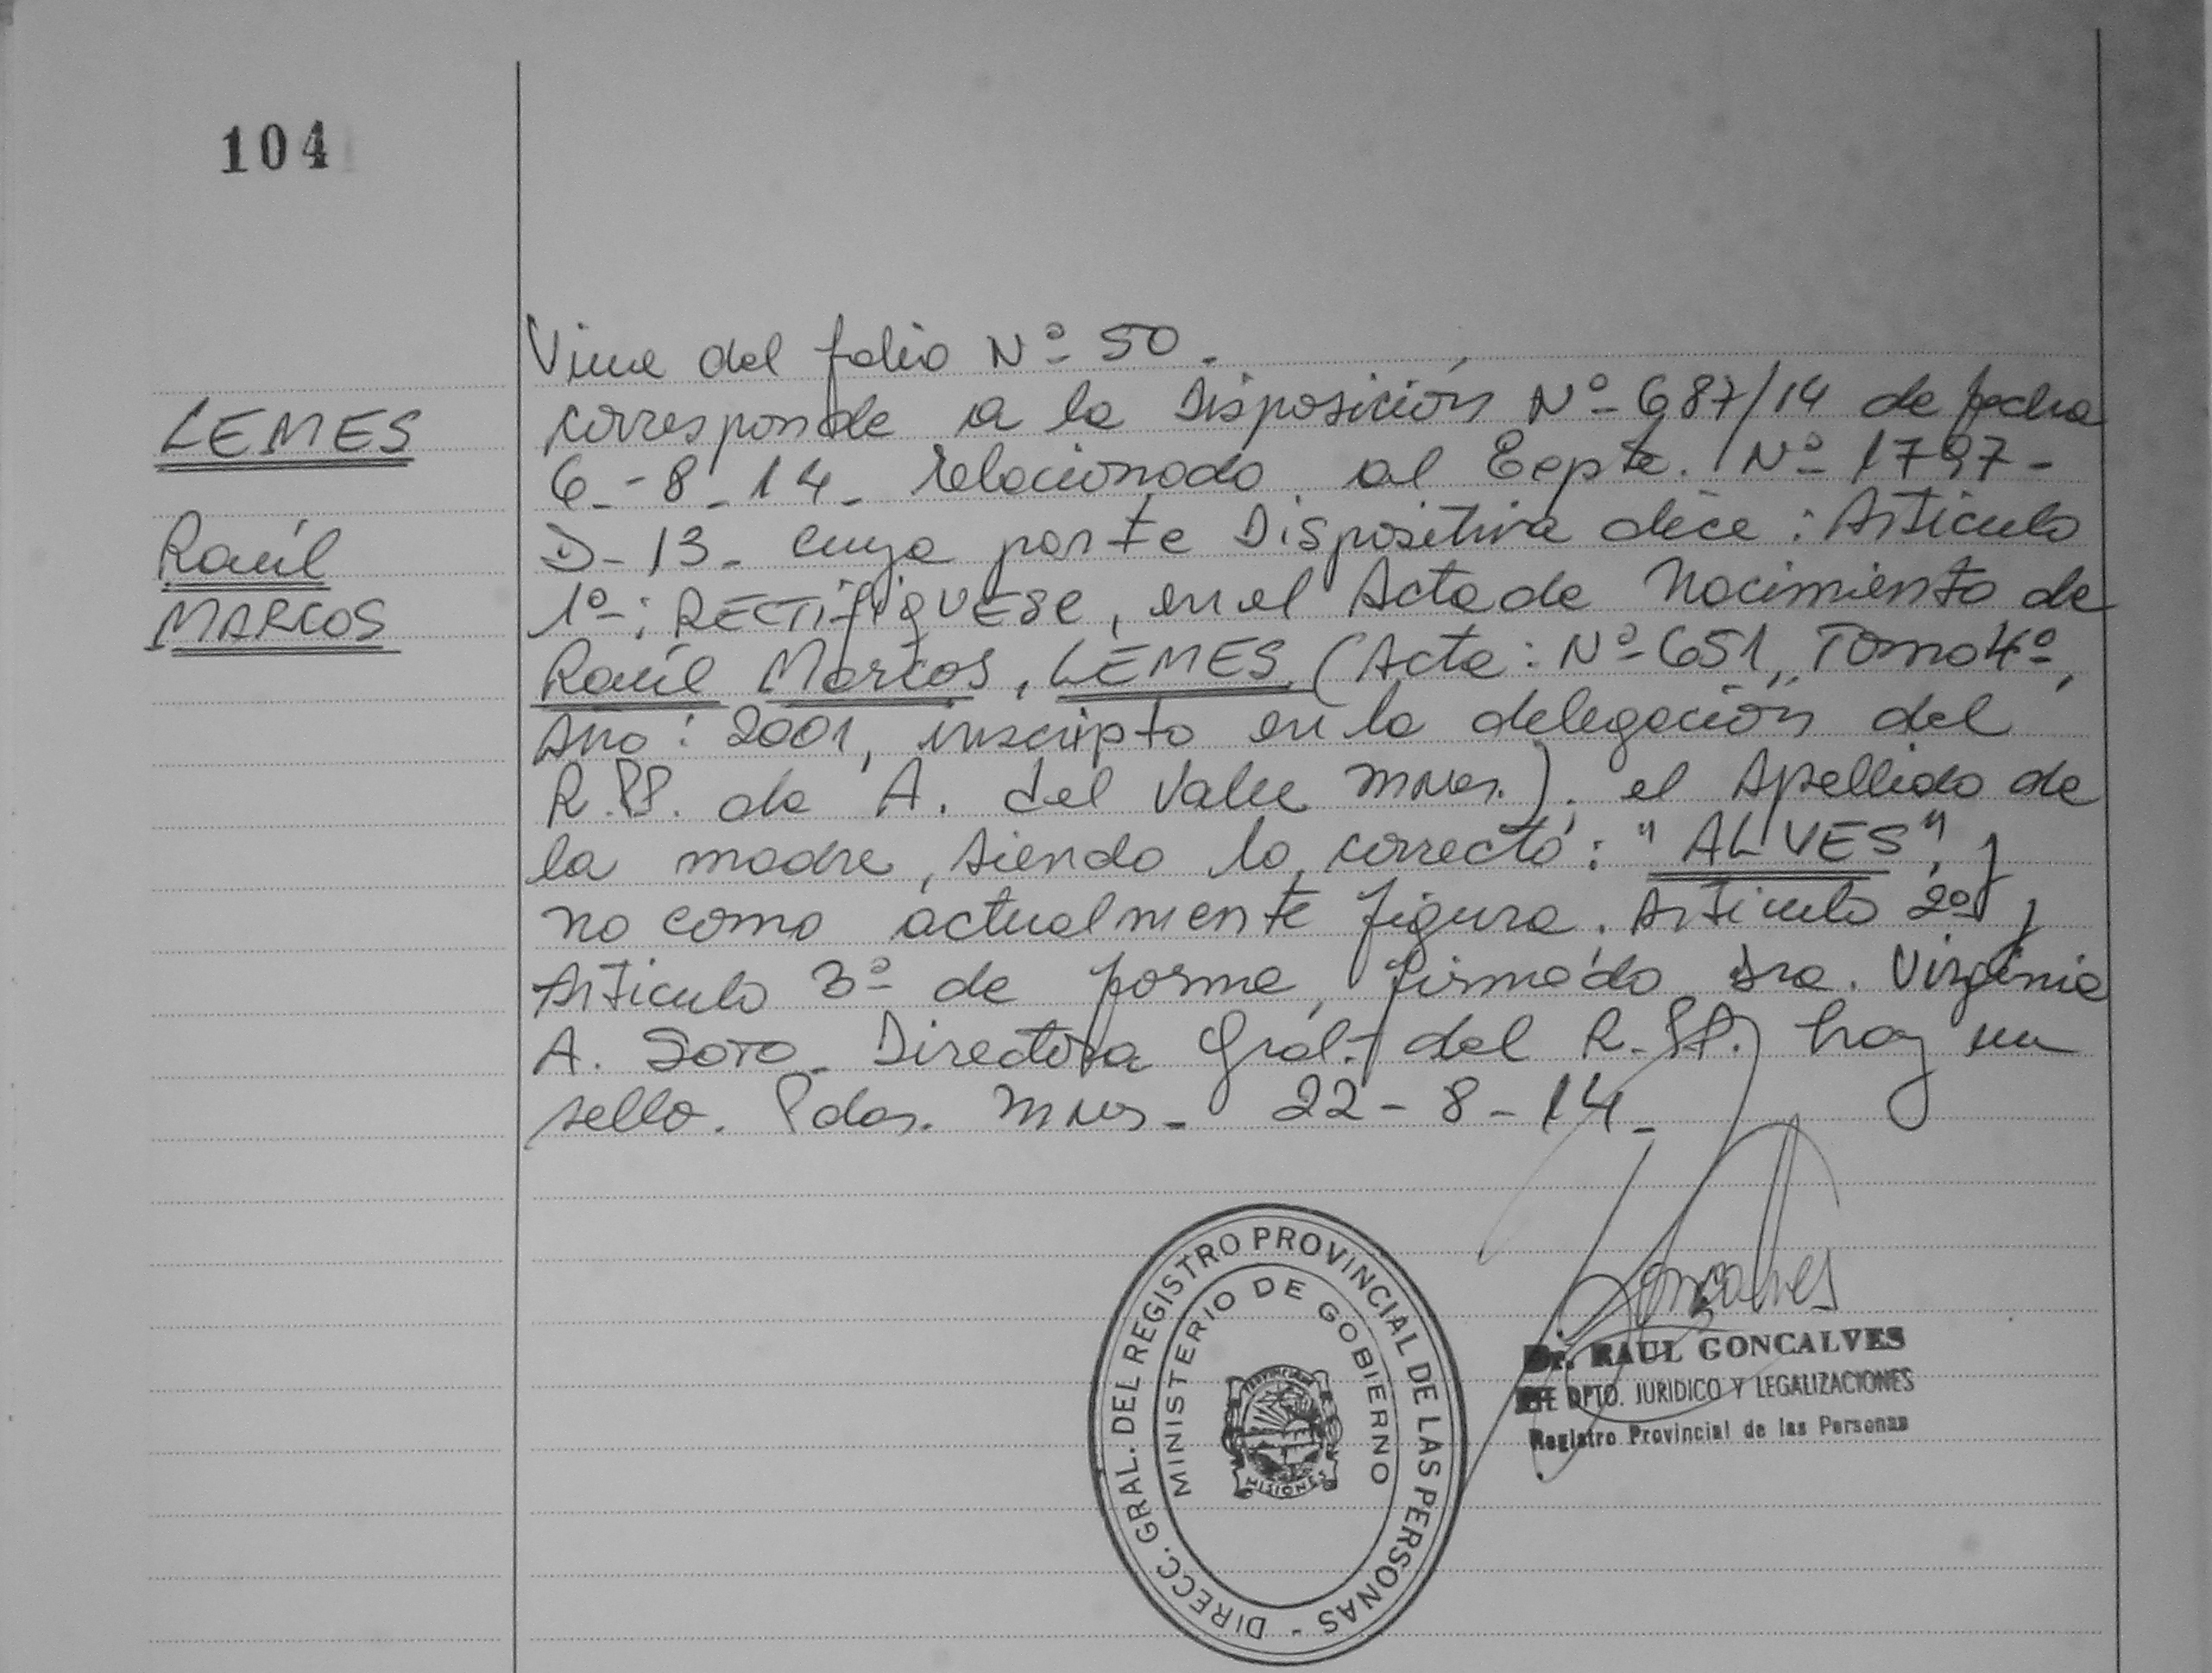 104
LEMES
Raúl
MARCOS
Viene del folio Nº 50.
corresponde a la Disposición Nº 687/14 de fecha
6-8-14- relacionado al Eepte. Nº 1797-
D-13- cuya parte Dispositiva dice: Articulo
1º-: RECTIFIQUESE, en el Acta de Nacimiento de
Raúl Marcos, LEMES (Acta: Nº 651, Tomo 4º,
Año: 2001, inscripto en la delegación del
R.PP. de A. del Valle Mnes.). el Apellido de
la madre, siendo lo correcto: "ALVES", y
no como actualmente figura. Articulo 2º y
Articulo 3º de forma, firmado Dra. Virginia
A. Soto- Directora Gral. del R.PP. hay un
sello. Pdas. Mnes- 22-8-14-
DIRECC. GRAL. DEL REGISTRO PROVINCIAL DE LAS PERSONAS -
MINISTERIO DE GOBIERNO
MISIONES
Goncalves
Dr. RAUL GONCALVES
JEFE DPTO. JURIDICO Y LEGALIZACIONES
Registro Provincial de las Personas